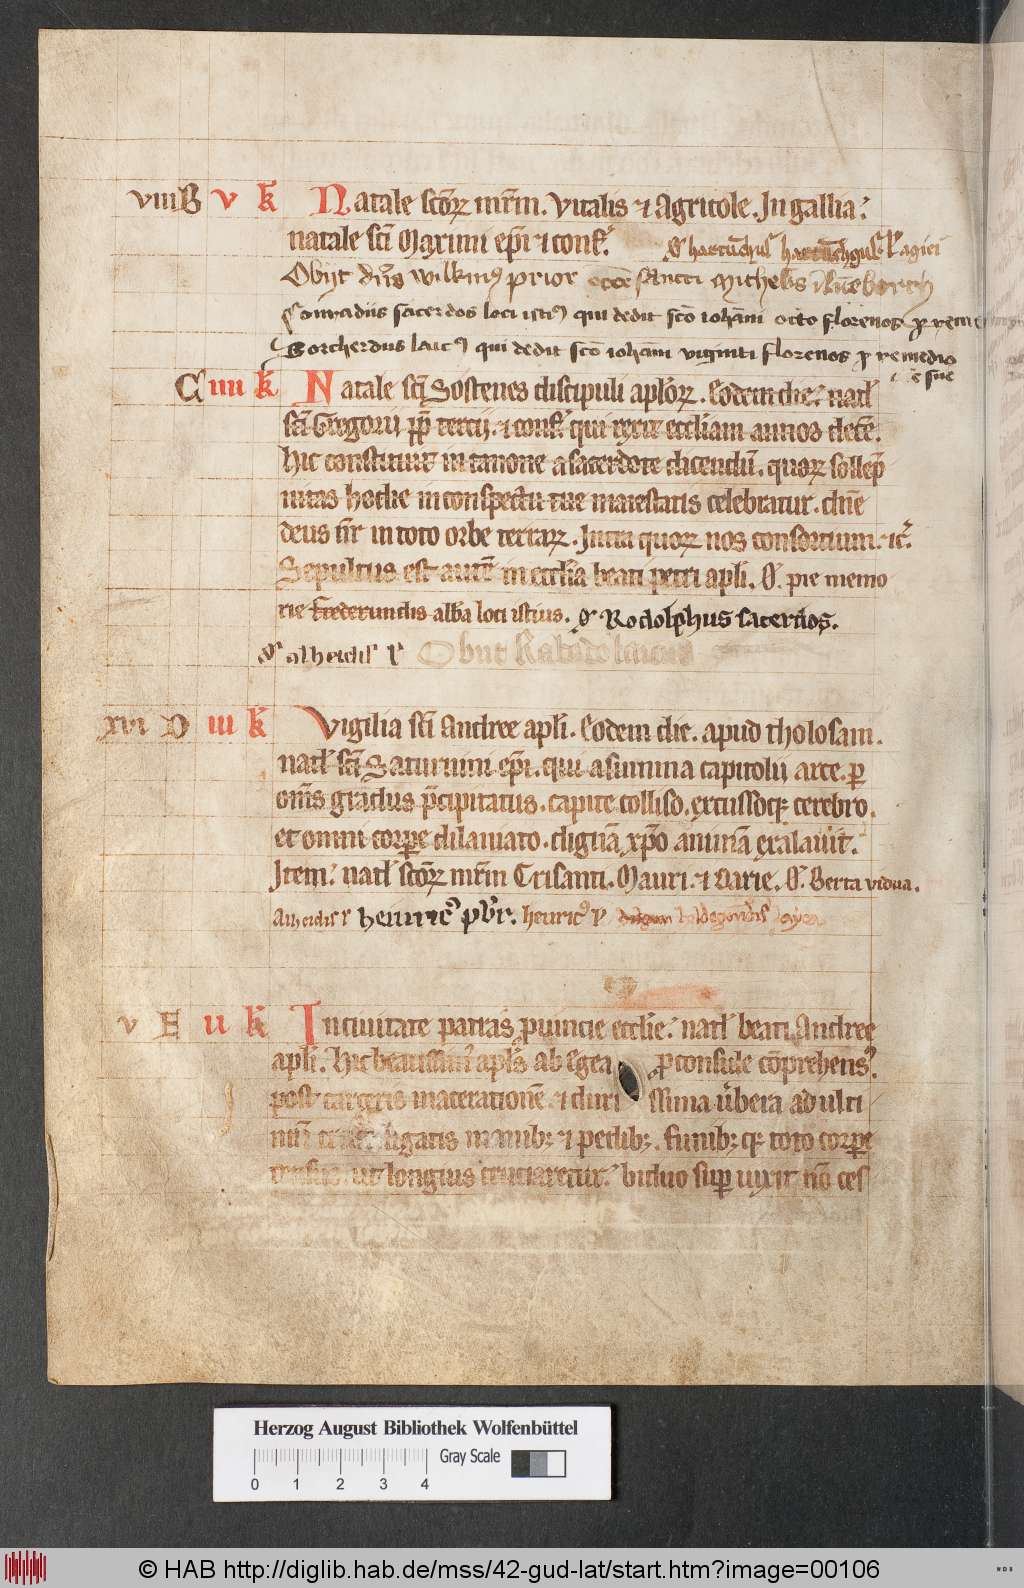 viii B v k̅ Natale sc̅oꝝ mr̅m. Vitalis ⁊ Agricole. In gallia:
natale sc̅i Maximi ep̅i ⁊ conf.
Obijt dn̅s wilkinꝰ prior sancti Michelis
Conradus sacerdos loci istiꝰ qui dedit sc̅o ioha̅ni octo florenos ꝓ
Borcherdus laicꝰ qui dedit sc̅o ioha̅ni viginti florenos ꝓ remedio
a̅i̅e sue
C iiii k̅ Natale sc̅i Sostenes discipuli apl̅oꝝ. Eodem die: natl̅
sc̅i Gregorii pp̅ tercij. ⁊ conf. qui rexit eccl̅iam annos dece̅.
hic constituit in canone a sacerdote dicendu̅. quoꝝ sollep̅
nitas hodie in conspectu tue maiestatis celebratur. dn̅e
deus nr̅ in toto orbe terraꝝ. Iuxta quoꝝ nos consortium. ⁊c̅.
Sepultus est aute̅ in eccl̅ia beati petri apl̅i. O. pie memo
rie Frederundis abb̅a loci istius. O Rodolphus sacerdos.
O alheidis l' Obiit laicus
xvi D iii k̅ Vigilia sc̅i Andree apl̅i. Eodem die. apud tholosam.
natl̅ sc̅i Saturnini ep̅i. qui a summa capitolii arce. ꝑ
om̅s gradus p̅cipitatus. capite colliso. excussoqꝫ cerebro.
et omni corꝑe dilaniato. digna̅ xp̅o anima̅ exalavit.
Item: natl̅ sc̅oꝝ mr̅m Crisanti. Mauri. ⁊ Darie. O. Berta vidua.
Alheidis l' heinricꝰ pb̅r. henricꝰ l'
v E ii k̅ In civitate patras ꝓvincie eccl̅ie: natl̅ beati Andree
apl̅i. Hic beatissimꝰ apl̅s ab Egea ꝓconsule co̅prehensꝰ.
post carceris maceratione̅ ⁊ duri ssima v̅bera ad ulti
mu̅ ligatis manibꝫ ⁊ pedibꝫ. funibꝫ qꝫ toto corꝑe
ut longius cruciaretur. biduo suꝑ vixit no̅ ces
Herzog August Bibliothek Wolfenbüttel
Gray Scale
0 1 2 3 4
© HAB http://diglib.hab.de/mss/42-gud-lat/start.htm?image=00106